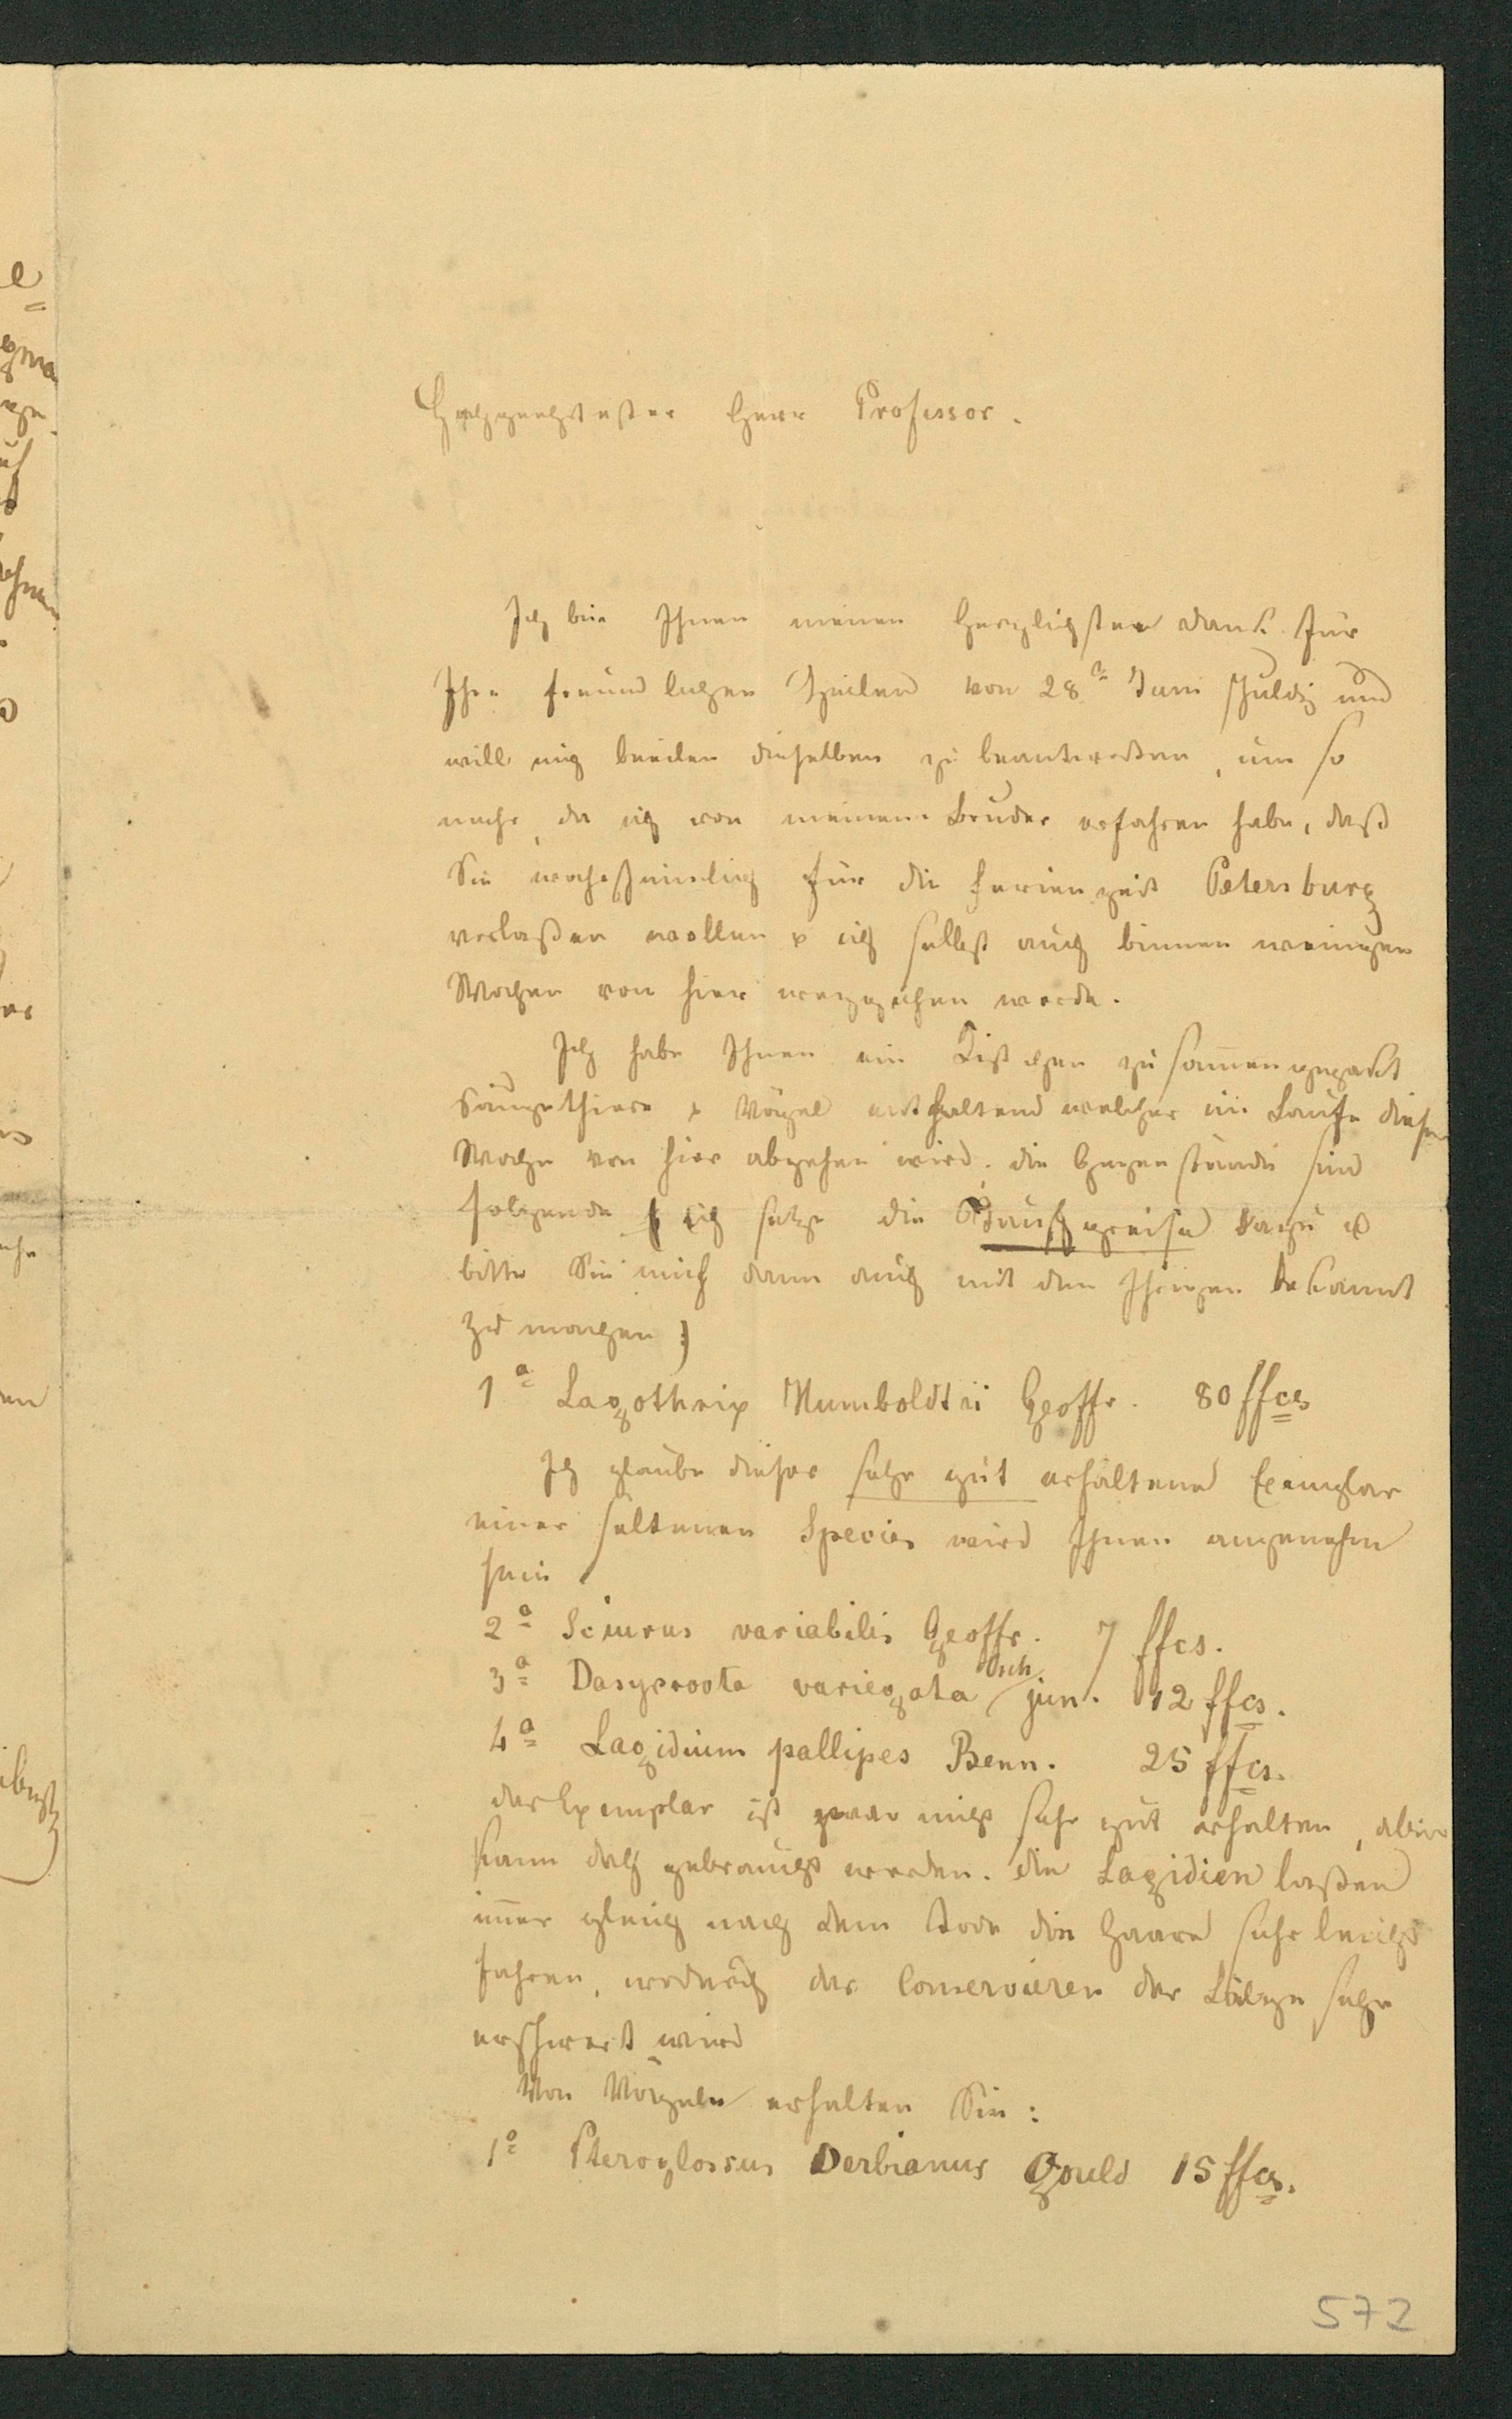 Hochgeachtester Herr Professor.
Ich bin Ihnen meinen herzlichsten Dank für
Ihre freundlichen Zeilen von 28ⁿ Juni schuldig und
will mich beeilen dieselben zu beantworten, um so
mehr, da ich von meinem Bruder erfahren habe, daß
Sie wahrscheinlich für die Ferienzeit Petersburg
verlaßen wollen & ich selbst auch binnen wenigen
Wochen von hier wegziehen werde.
Ich habe Ihnen ein Kistchen zusam̅engepackt
Säugethiere & Vögel enthaltend welches im Laufe dieser
Woche von hier abgehen wird. die Gegenstände sind
folgende ( ich setze die Tauschpreise dazu &
bitte Sie mich dann auch mit den Ihrigen bekannt
zu machen)
1ª Lagothrix Humboldtii Geoffr. 80 ffcs
Ich glaube dieses sehr gut erhaltene Exemplar
einer seltenen Species wird Ihnen angenehm
sein
2ª Sciurus variabilis Geoffr. 7 ffcs.
3ª Dasyprocta variegata Tsch jun. 12 ffcs.
4ª Lagidium pallipes Benn. 25 ffcs.
das Exemplar ist zwar nicht sehr gut erhalten, aber
kann doch gebraucht werden. die Lagidien laßen
im̅er gleich nach dem Tode die Haare sehr leicht
fahren, wodurch das Conservieren der Bälge sehr
erschwert wird
Von Vögeln erhalten Sie:
1º Pteroglossus Derbianus Gould 15 ffcs.
572